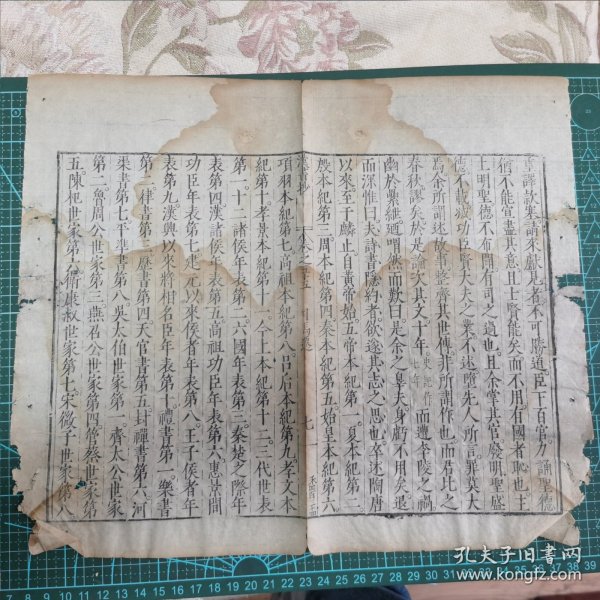 重譯款塞請來獻見者不可勝道臣下百官力誦聖德
不能宣盡其意且士賢能矣而不用有國者恥也主
上明聖德不布聞有司之過也且余掌其官廢明聖盛
德不載滅功臣賢大夫之業不述墮先人所言罪莫大
焉余所謂述故事整齊其世傳非所謂作也而君比之
春秋謬矣於是論次其文十年史記作七年而遭李陵之禍
幽於纍紲迺喟然而歎曰是余之辠夫身虧不用矣退
而深惟曰夫詩書隱約者欲遂其志之思也卒述陶唐
以來至于麟止自黃帝始五帝本紀第一夏本紀第二
殷本紀第三周本紀第四秦本紀第五始皇本紀第六
項羽本紀第七高祖本紀第八呂后本紀第九孝文本
紀第十孝景本紀第十一今上本紀第十二三代世表
第一十二諸侯年表第二六國年表第三秦楚之際年
表第四漢諸侯年表第五高祖功臣年表第六惠景間
功臣年表第七建元以來侯者年表第八王子侯者年
表第九漢興以來將相名臣年表第十禮書第一樂書
第二律書第三歷書第四天官書第五封禪書第六河
渠書第七平準書第八吳太伯世家第一齊太公世家
第二魯周公世家第三燕召公世家第四管蔡世家第
五陳杞世家第六衛康叔世家第七宋微子世家第八
孔夫子旧书网
www.kongfz.com